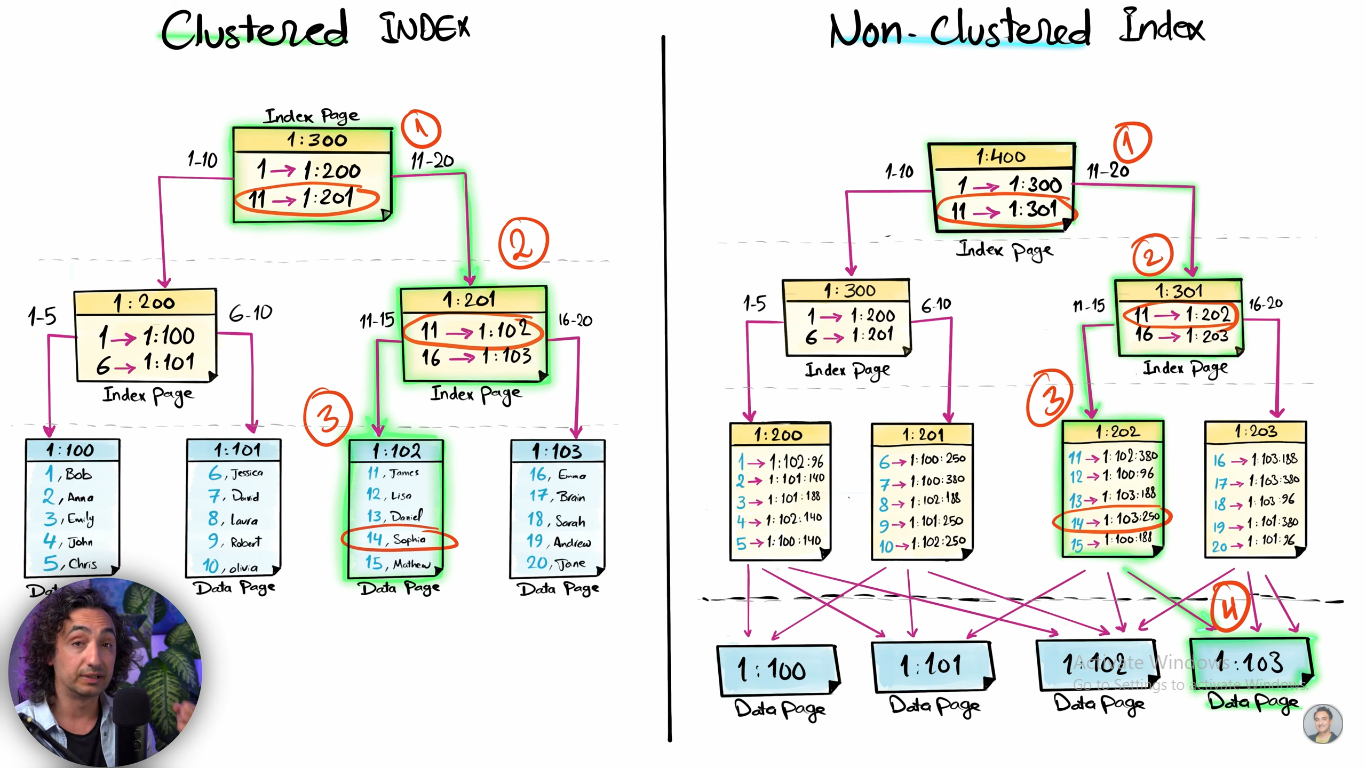 Clustered INDEX
Index Page
1:300
1 → 1:200
11 → 1:201
1-10
11-20
1
2
1:200
1 → 1:100
6 → 1:101
Index Page
1-5
6-10
1:201
11 → 1:102
16 → 1:103
Index Page
11-15
16-20
3
1:100
1, Bob
2, Anna
3, Emily
4, John
5, Chris
Data
1:101
6, Jessica
7, David
8, Laura
9, Robert
10, olivia
Data Page
1:102
11, James
12, Lisa
13, Daniel
14, Sophia
15, Mathew
Data Page
1:103
16, Emma
17, Brain
18, Sarah
19, Andrew
20, Jane
Data Page
Non-Clustered Index
1:400
1 → 1:300
11 → 1:301
Index Page
1-10
11-20
1
2
1:300
1 → 1:200
6 → 1:201
Index Page
1-5
6-10
1:301
11 → 1:202
16 → 1:203
Index Page
11-15
16-20
3
1:200
1 → 1:102:96
2 → 1:101:140
3 → 1:101:188
4 → 1:102:140
5 → 1:100:140
1:201
6 → 1:100:250
7 → 1:100:380
8 → 1:102:188
9 → 1:101:250
10 → 1:102:250
1:202
11 → 1:102:380
12 → 1:100:96
13 → 1:103:188
14 → 1:103:250
15 → 1:100:188
1:203
16 → 1:103:188
17 → 1:103:380
18 → 1:103:96
19 → 1:101:380
20 → 1:101:96
4
1:100
Data Page
1:101
Data Page
1:102
Data Page
1:103
Data Page
Activate Windows
Go to Settings to activate Windows.